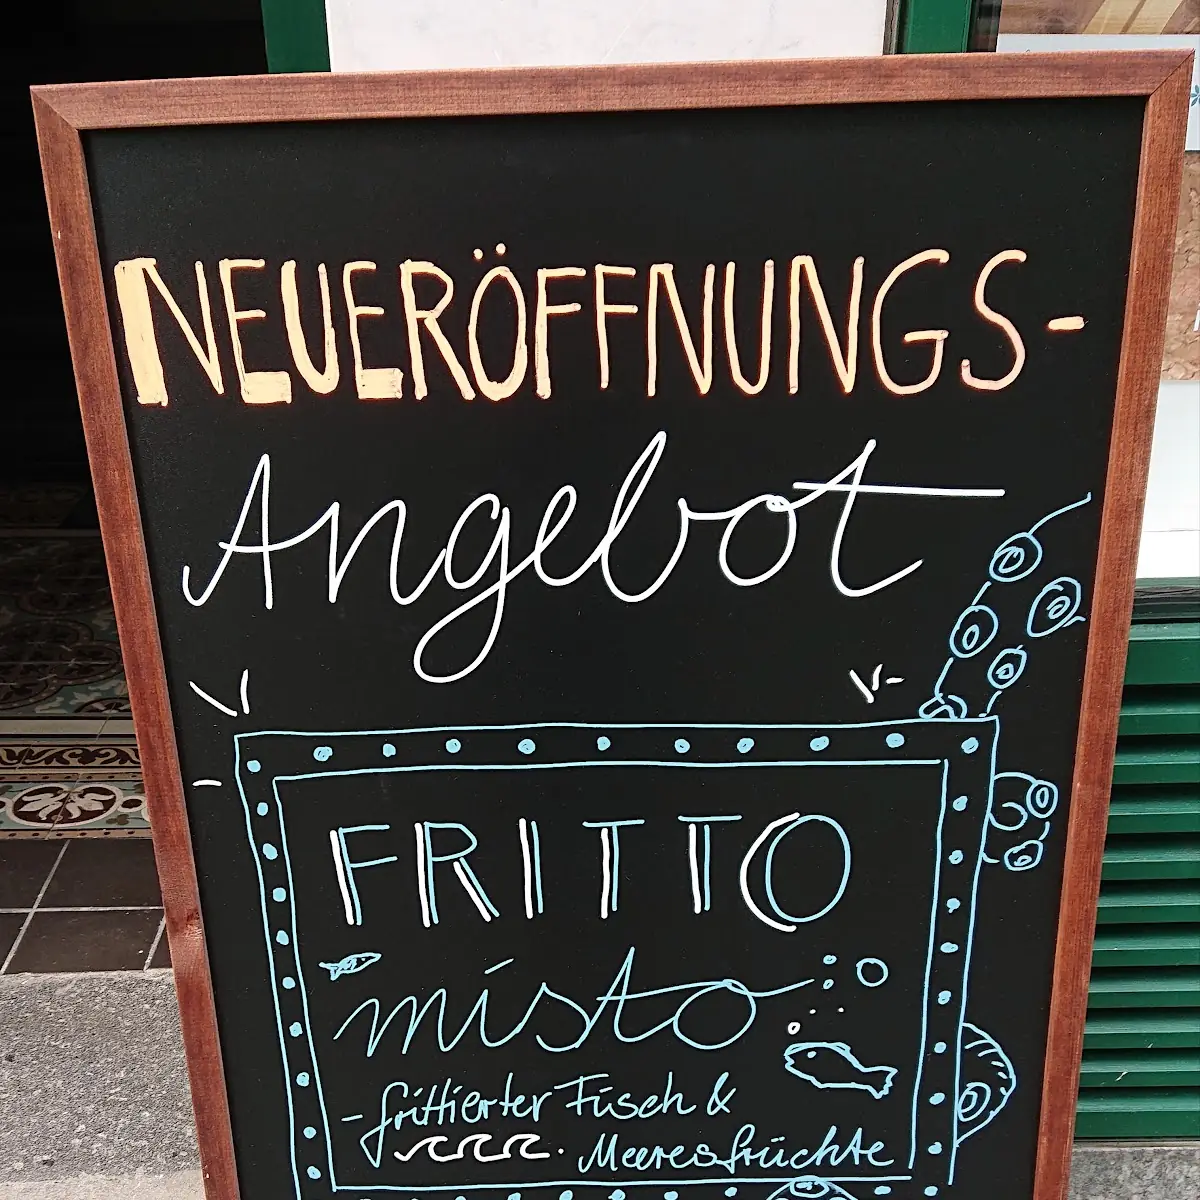 NEUERÖFFNUNGS-
Angebot
FRITTO
misto
- frittierter Fisch &
Meeresfrüchte